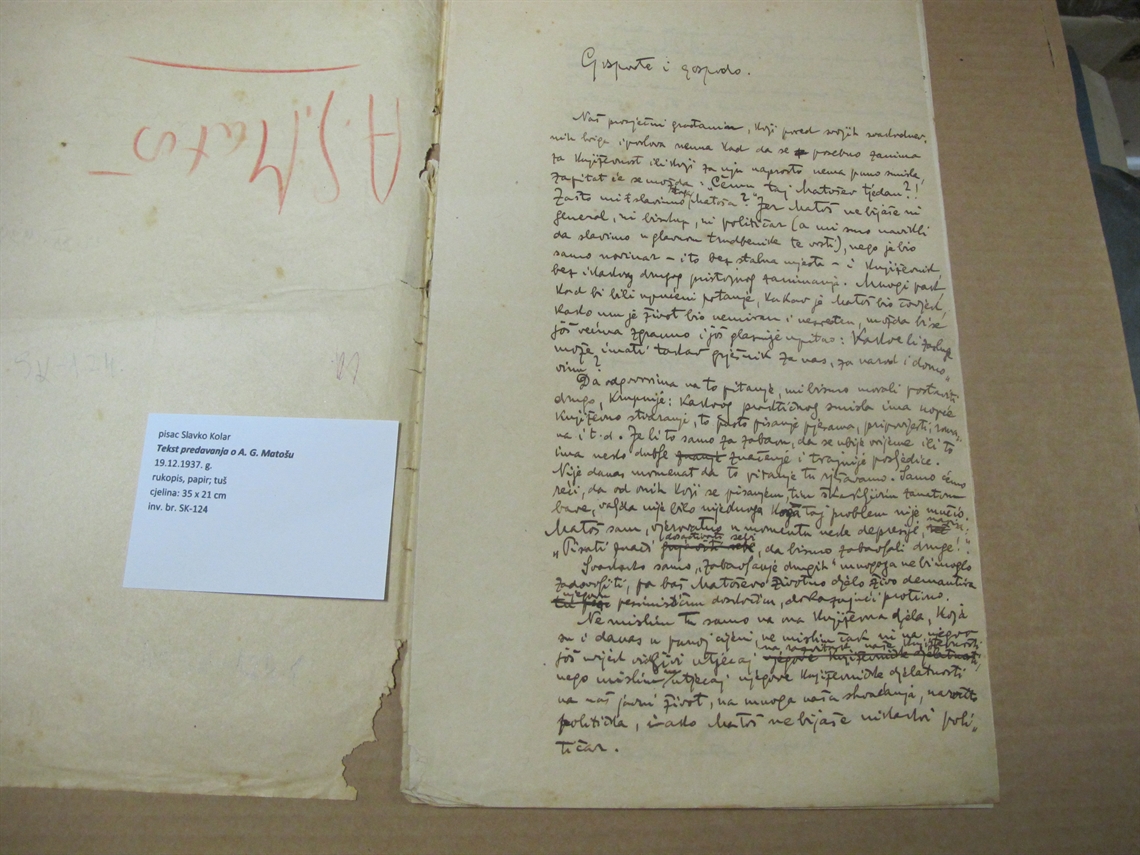 A. G. Matoš
pisac Slavko Kolar
Tekst predavanja o A. G. Matošu
19.12.1937. g.
rukopis, papir; tuš
cjelina: 35 x 21 cm
inv. br. SK-124
Gospođe i gospodo.
Naš prosječni građanin, koji pored svojih svakodnev-
nih briga i poslova nema kad da se posebno zanima
za književnost ili koji za nju naprosto nema puno smisla,
zapitat će se možda: „Čemu taj Matošev tjedan?!
Zašto mi slavimo toga Matoša?" Jer Matoš ne bijaše ni
general, ni biskup, ni političar (a mi smo navikli
da slavimo uglavnom trudbenike te vrsti), nego je bio
samo novinar – i to bez stalna mjesta – i književnik,
bez ikakvog drugog pristojnog zanimanja. Mnogi pak
kad bi bili upućeni pitanje, kakav je Matoš bio čovjek,
kako mu je život bio nemiran i nesređen, možda bi se
još većma zgranuo i još glasnije upitao: Kakve li zasluge
može imati takav grješnik za nas, za narod i domo„
vinu?
Da odgovorimo na to pitanje, mi bismo morali postaviti
drugo, krupnije: Kakvog praktičnog smisla ima uopće
književno stvaranje, to jest pisanje pjesama, pripovijesti, roma„
na i t. d. Je li to samo za zabavu, da se ubije vrijeme ili to
ima neko dublje značenje i trajnije posljedice.
Nije danas momenat da to pitanje tu rješavamo. Samo ćemo
reći, da od onih koji se pisanjem, tim škakljivim zanatom
bave, valjda nije bilo nijednoga koga taj problem nije mučio.
Matoš sam, vjerovatno u momentu neke depresije,
„Pisati znači dosađivati sebi, da bismo zabavljali druge!"
Svakako samo „zabavljanje drugih" mnogoga ne bi moglo
zadovoljiti, pa baš Matoševo životno djelo živo demantira
njegovu pesimističku dosjetku, dokazujući protivno.
Ne mislim tu samo na ona književna djela, koja
su i danas u punoj cijeni, ne mislim čak ni na njegov
još uvijek vidljivi utjecaj na razvitak naše književnosti,
nego mislim na utjecaj njegove književničke djelatnosti
na naš javni život, na mnoga naša shvaćanja, naročito
politička, iako Matoš ne bijaše nikakvi poli„
tičar.